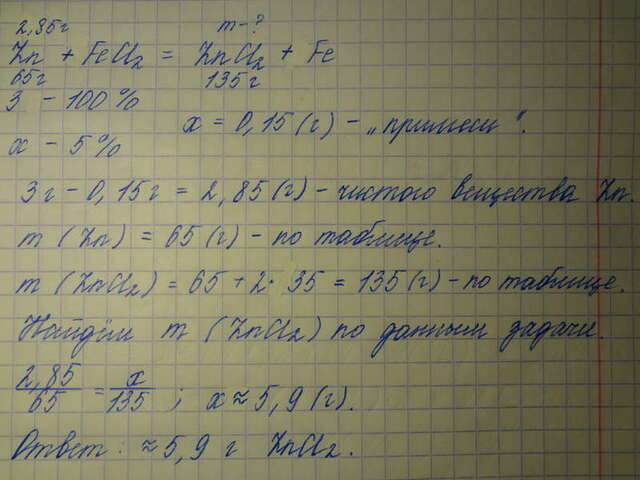 2,85г m-?
Zn + FeCl₂ = ZnCl₂ + Fe
65г 135г
3 - 100%
x = 0,15 (г) - „примеси".
x - 5%
3г - 0,15г = 2,85 (г) - чистого вещества Zn.
m (Zn) = 65 (г) - по таблице.
m (ZnCl₂) = 65 + 2 · 35 = 135 (г) - по таблице.
Найдём m (ZnCl₂) по данным задачи.
2,85/65 = x/135 ; x ≈ 5,9 (г).
Ответ: ≈ 5,9 г ZnCl₂.